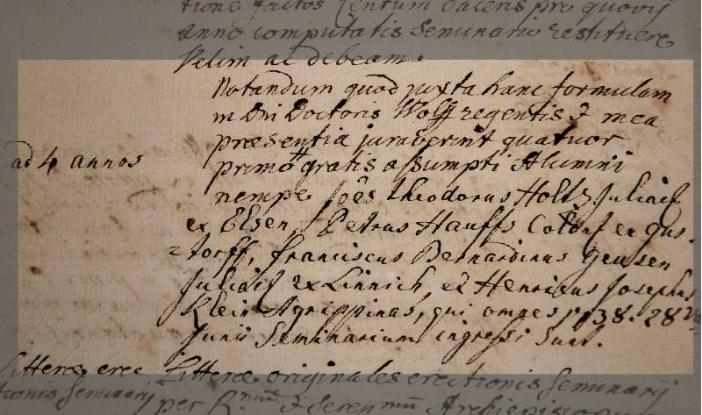 tione factos Centum daleris pro quovis
anno computatis Seminario restituere
Velim ac debeam.
Notandum quod juxta hanc formulam
in Dni Doctoris Wolff regentis & mea
præsentia juraverint quatuor
ad 4 annos
primo gratis assumpti Alumni
nempe Joes Theodorus Holtz Juliacis
ex Elsen, Petrus Hauffs Colon ex Gus-
torff, Franciscus Bernardinus Geusen
Juliacis ex Linnich, et Henricus Josephus
Klein Agrippinas, qui omnes 1738. 28
Junii Seminarium ingressi sunt.
Litteræ erec Litteræ originales erectionis Seminarij
tionis Seminarij
per & Archiepisco